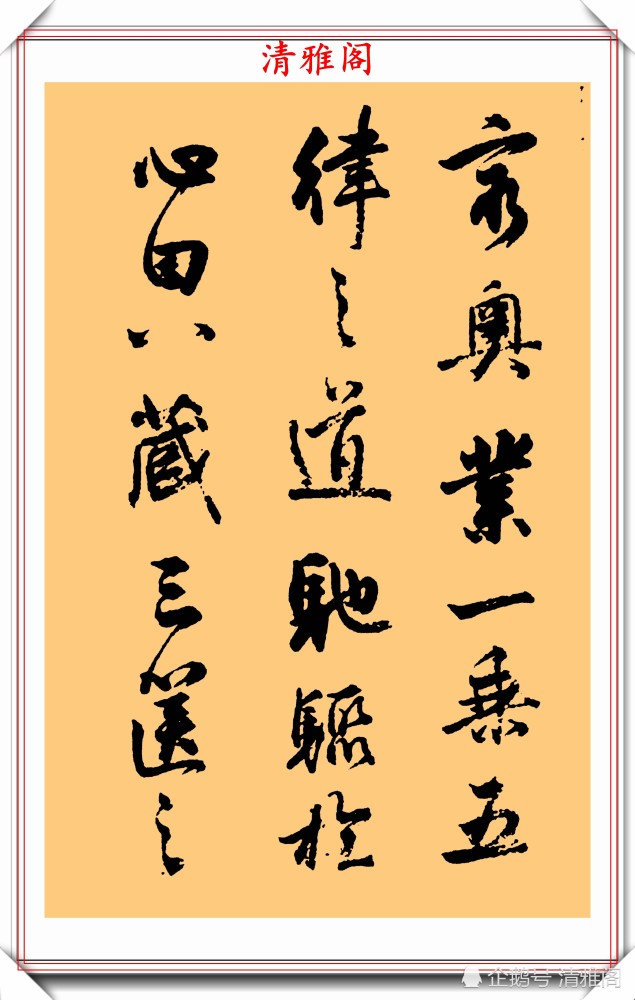 清雅阁
窮奥業一乘五
律之道馳驟於
心田八藏三篋之
企鹅号 清雅阁